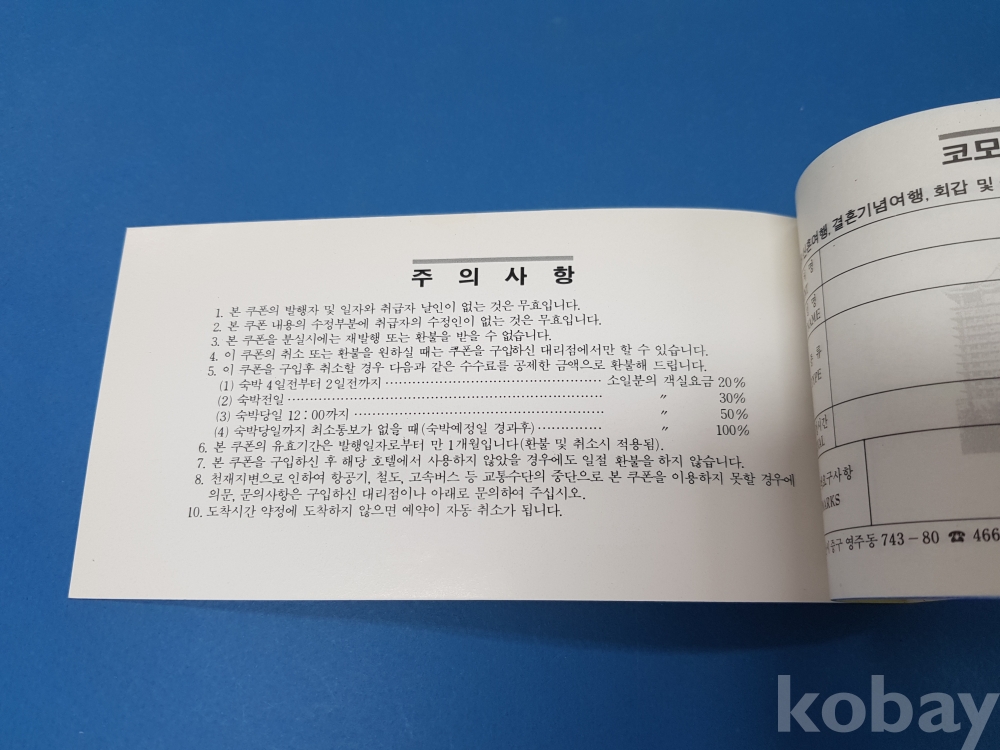 주 의 사 항
1. 본 쿠폰의 발행자 및 일자와 취급자 날인이 없는 것은 무효입니다.
2. 본 쿠폰 내용의 수정부분에 취급자의 수정인이 없는 것은 무효입니다.
3. 본 쿠폰을 분실시에는 재발행 또는 환불을 받을 수 없습니다.
4. 이 쿠폰의 취소 또는 환불을 원하실 때는 쿠폰을 구입하신 대리점에서만 할 수 있습니다.
5. 이 쿠폰을 구입후 취소할 경우 다음과 같은 수수료를 공제한 금액으로 환불해 드립니다.
(1) 숙박 4일전부터 2일전까지 ········ 소일분의 객실요금 20%
(2) 숙박전일 ········ 〃 30%
(3) 숙박당일 12:00까지 ········ 〃 50%
(4) 숙박당일까지 최소통보가 없을 때(숙박예정일 경과후) ········ 〃 100%
6. 본 쿠폰의 유효기간은 발행일자로부터 만 1개월입니다(환불 및 취소시 적용됨).
7. 본 쿠폰을 구입하신 후 해당 호텔에서 사용하지 않았을 경우에도 일절 환불을 하지 않습니다.
8. 천재지변으로 인하여 항공기, 철도, 고속버스 등 교통수단의 중단으로 본 쿠폰을 이용하지 못할 경우에
의문, 문의사항은 구입하신 대리점이나 아래로 문의하여 주십시오.
10. 도착시간 약정에 도착하지 않으면 예약이 자동 취소가 됩니다.
코모
결혼기념여행, 회갑 및
요구사항
중구 영주동 743-80 ☎ 466
kobay